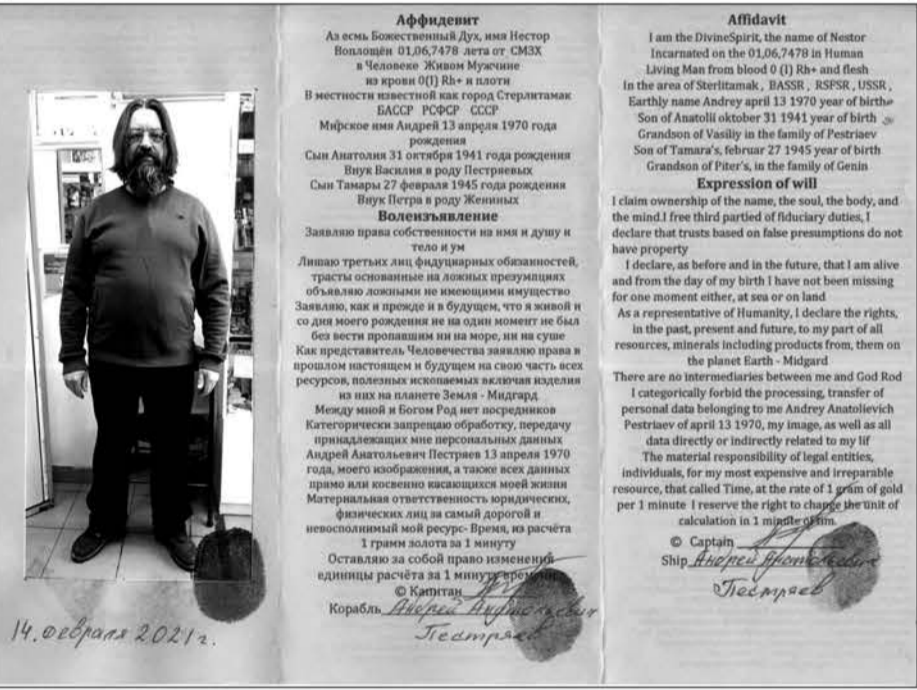 Аффидевит
Аз есмь Божественный Дух, имя Нестор
Воплощён 01,06,7478 лета от СМЗХ
в Человеке Живом Мужчине
из крови 0(I) Rh+ и плоти
В местности известной как город Стерлитамак
БАССР РСФСР СССР
Мирское имя Андрей 13 апреля 1970 года
рождения
Сын Анатолия 31 октября 1941 года рождения
Внук Василия в роду Пестряевых
Сын Тамары 27 февраля 1945 года рождения
Внук Петра в роду Жениных
Волеизъявление
Заявляю права собственности на имя и душу и
тело и ум
Лишаю третьих лиц фидуциарных обязанностей,
трасты основанные на ложных презумпциях
объявляю ложными не имеющими имущество
Заявляю, как и прежде и в будущем, что я живой и
со дня моего рождения не на один момент не был
без вести пропавшим ни на море, ни на суше
Как представитель Человечества заявляю права в
прошлом настоящем и будущем на свою часть всех
ресурсов, полезных ископаемых включая изделия
из них на планете Земля - Мидгард
Между мной и Богом Род нет посредников
Категорически запрещаю обработку, передачу
принадлежащих мне персональных данных
Андрей Анатольевич Пестряев 13 апреля 1970
года, моего изображения, а также всех данных
прямо или косвенно касающихся моей жизни
Материальная ответственность юридических,
физических лиц за самый дорогой и
невосполнимый мой ресурс- Время, из расчёта
1 грамм золота за 1 минуту
Оставляю за собой право изменения
единицы расчёта за 1 минуту времени
© Капитан
Корабль Андрей Анатольевич
Пестряев
Affidavit
I am the DivineSpirit, the name of Nestor
Incarnated on the 01,06,7478 in Human
Living Man from blood 0 (I) Rh+ and flesh
In the area of Sterlitamak , BASSR , RSFSR , USSR ,
Earthly name Andrey april 13 1970 year of birthe
Son of Anatolii oktober 31 1941 year of birth
Grandson of Vasiliy in the family of Pestriaev
Son of Tamara's, februar 27 1945 year of birth
Grandson of Piter's, in the family of Genin
Expression of will
I claim ownership of the name, the soul, the body, and
the mind.I free third partied of fiduciary duties, I
declare that trusts based on false presumptions do not
have property
I declare, as before and in the future, that I am alive
and from the day of my birth I have not been missing
for one moment either, at sea or on land
As a representative of Humanity, I declare the rights,
in the past, present and future, to my part of all
resources, minerals including products from, them on
the planet Earth - Midgard
There are no intermediaries between me and God Rod
I categorically forbid the processing, transfer of
personal data belonging to me Andrey Anatolievich
Pestriaev of april 13 1970, my image, as well as all
data directly or indirectly related to my lif
The material responsibility of legal entities,
individuals, for my most expensive and irreparable
resource, that called Time, at the rate of 1 gram of gold
per 1 minute I reserve the right to change the unit of
calculation in 1 minute of tim.
© Captain
Ship Андрей Анатольевич
Пестряев
14. Февраля 2021 г.